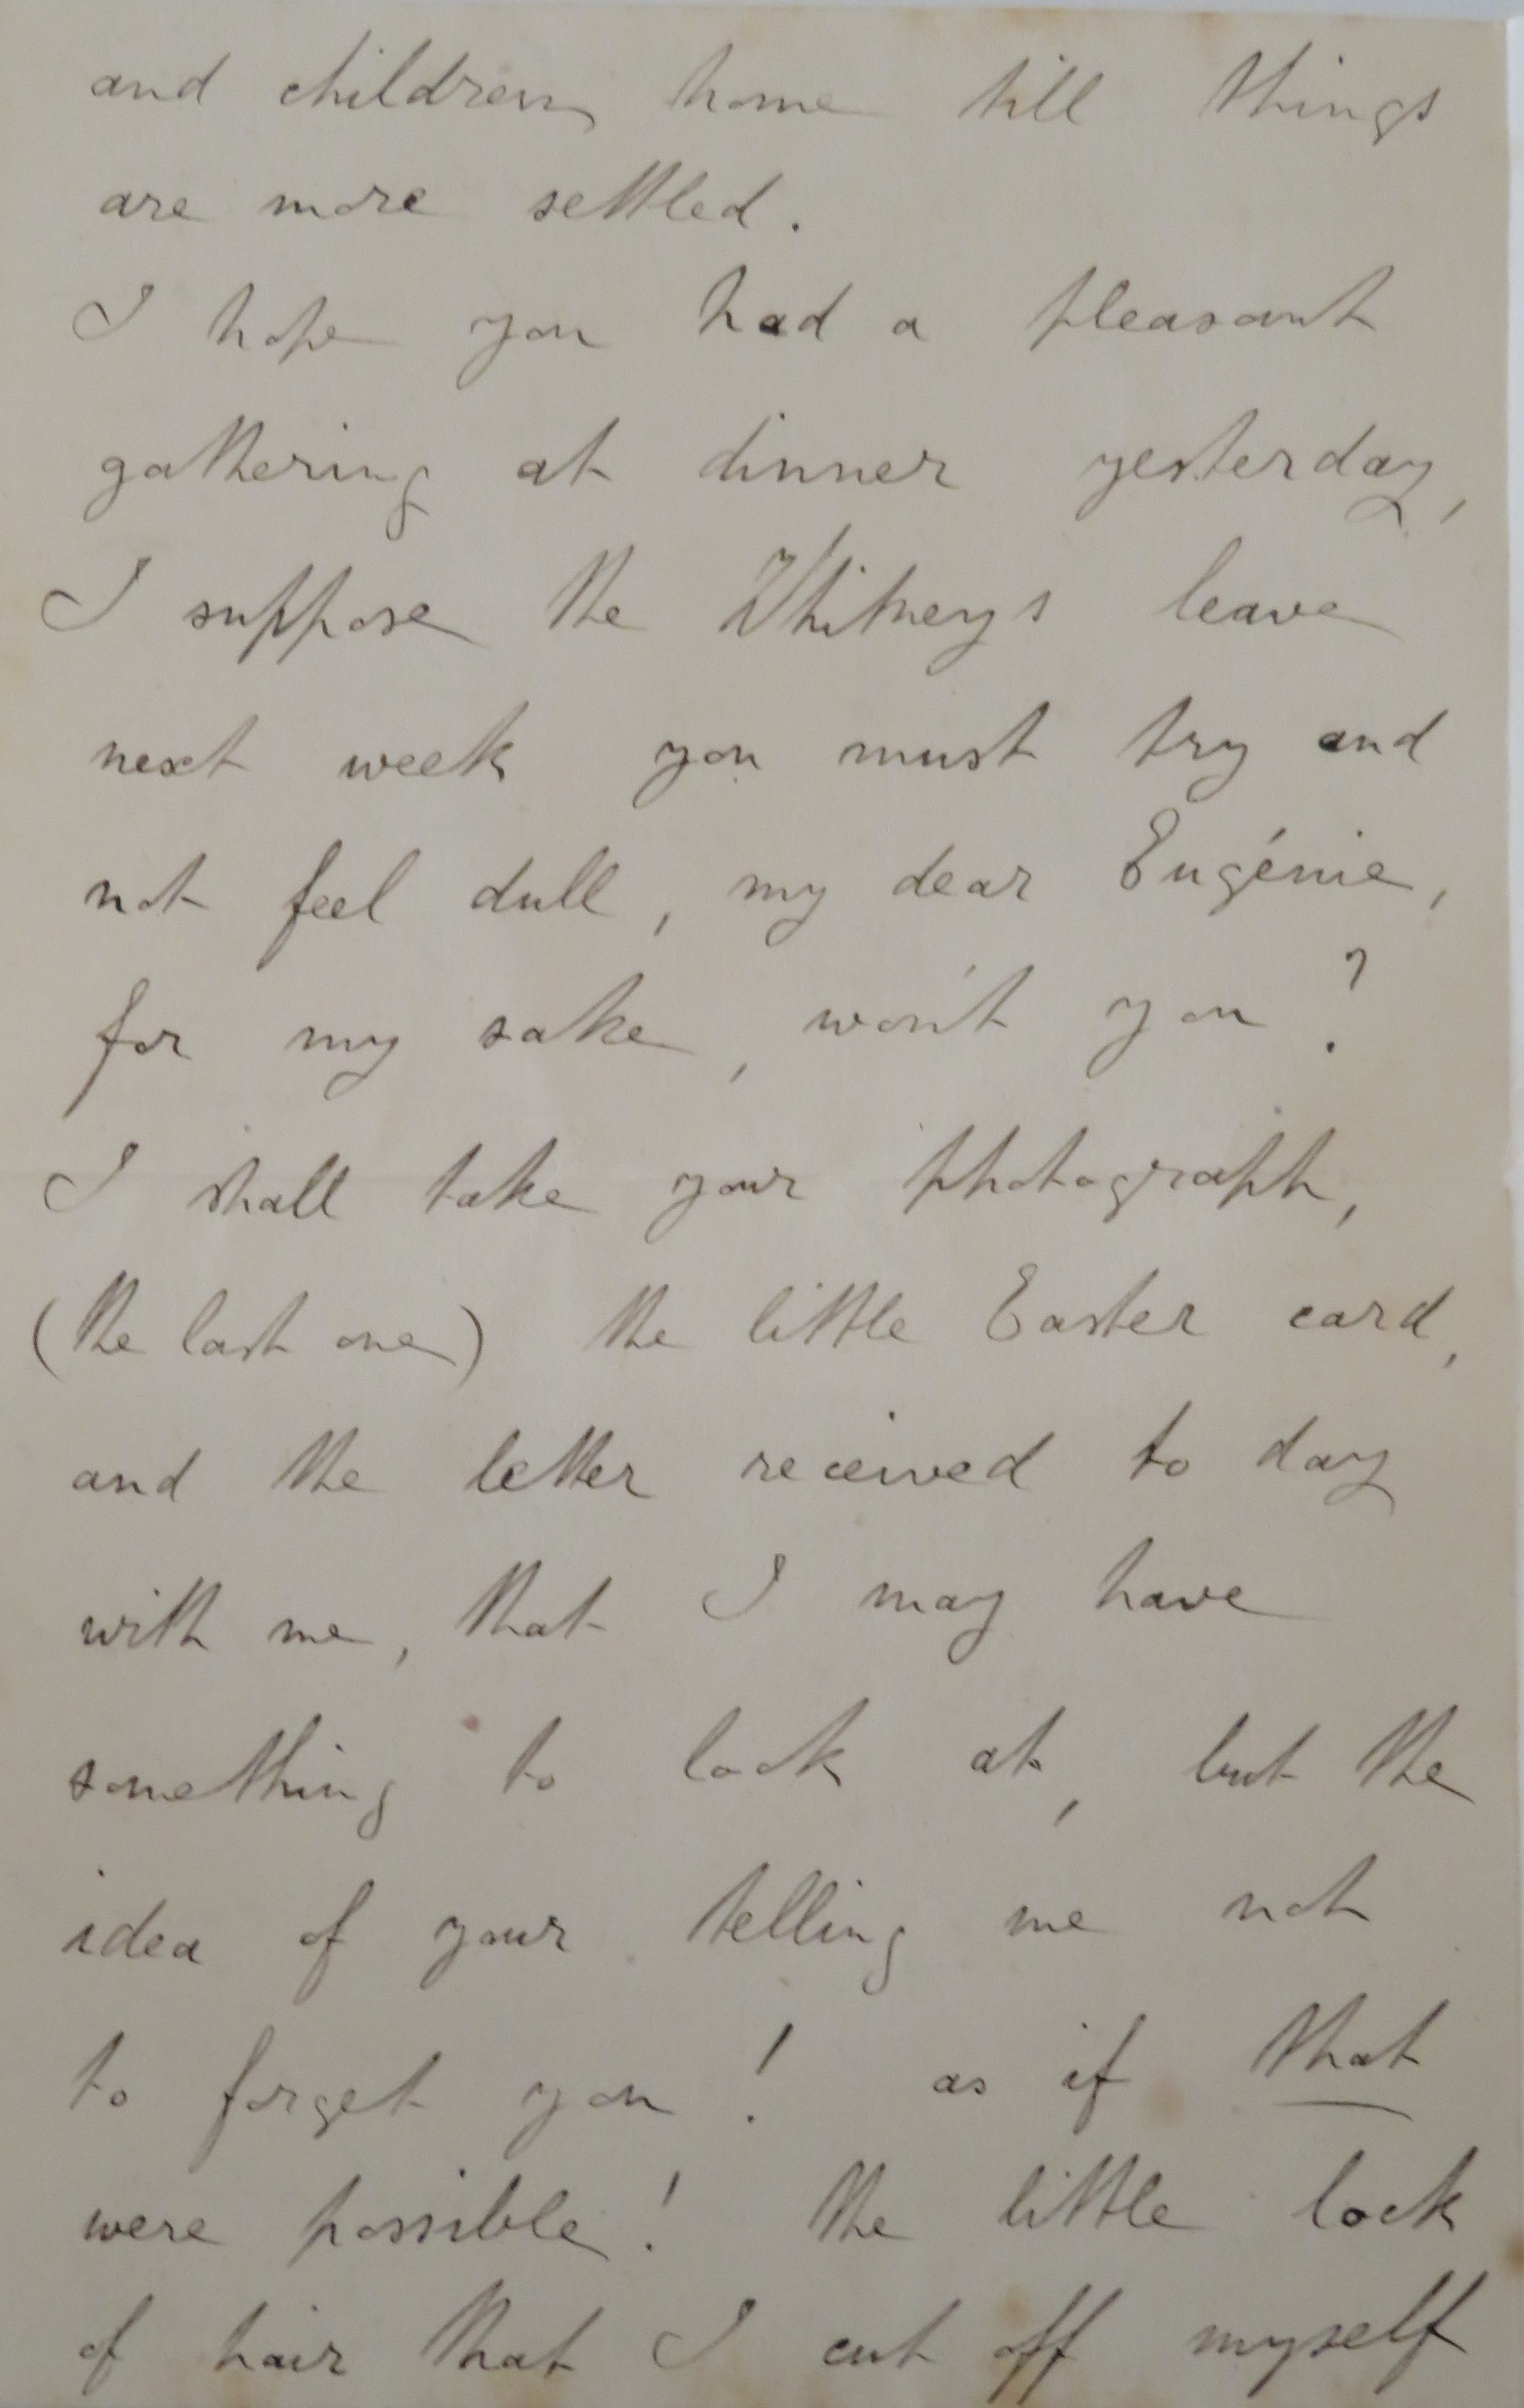 and children home till things
are more settled.
I hope you had a pleasant
gathering at dinner yesterday,
I suppose the Whitneys leave
next week you must try and
not feel dull, my dear Eugénie,
for my sake, won't you?
I shall take your photograph,
(the last one) the little Easter card,
and the letter received to day
with me, that I may have
something to look at, but the
idea of your telling me not
to forget you! as if that
were possible! the little lock
of hair that I cut off myself